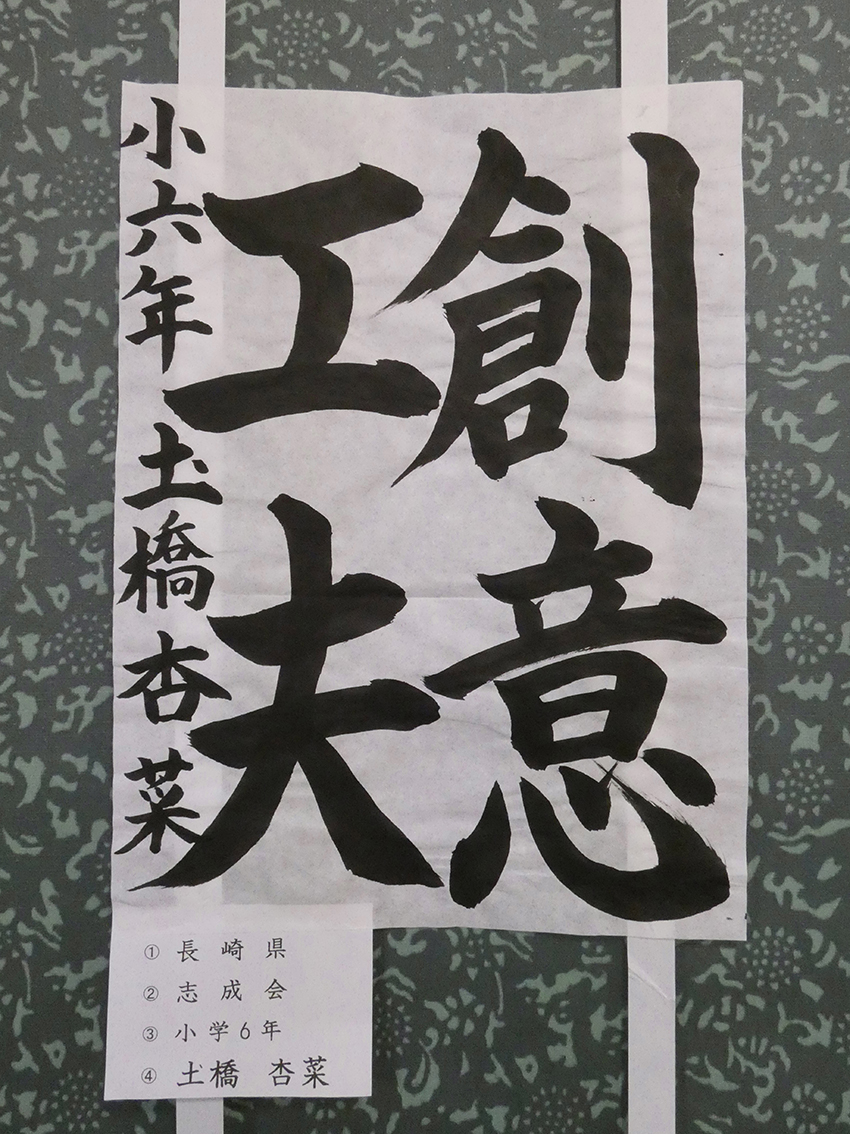 創意
工夫
小六年 圡橋杏菜
① 長崎県
② 志成会
③ 小学6年
④ 圡橋 杏菜